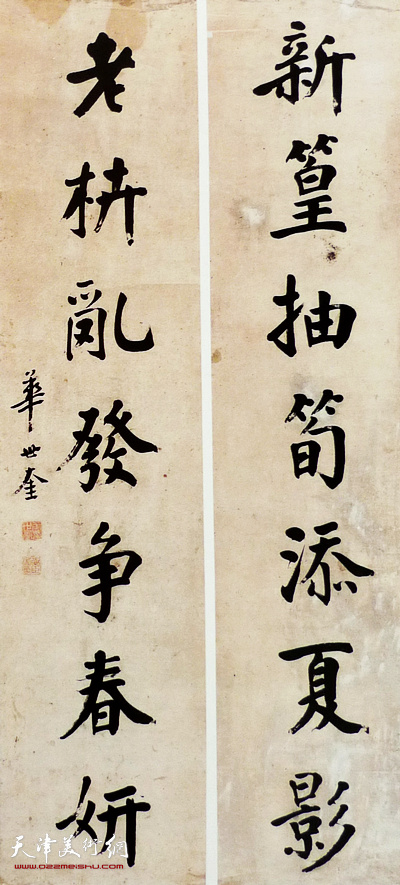 新篁抽筍添夏影
老枿亂發争春妍
華世奎
天津美術網
www.ozzmeishu.com